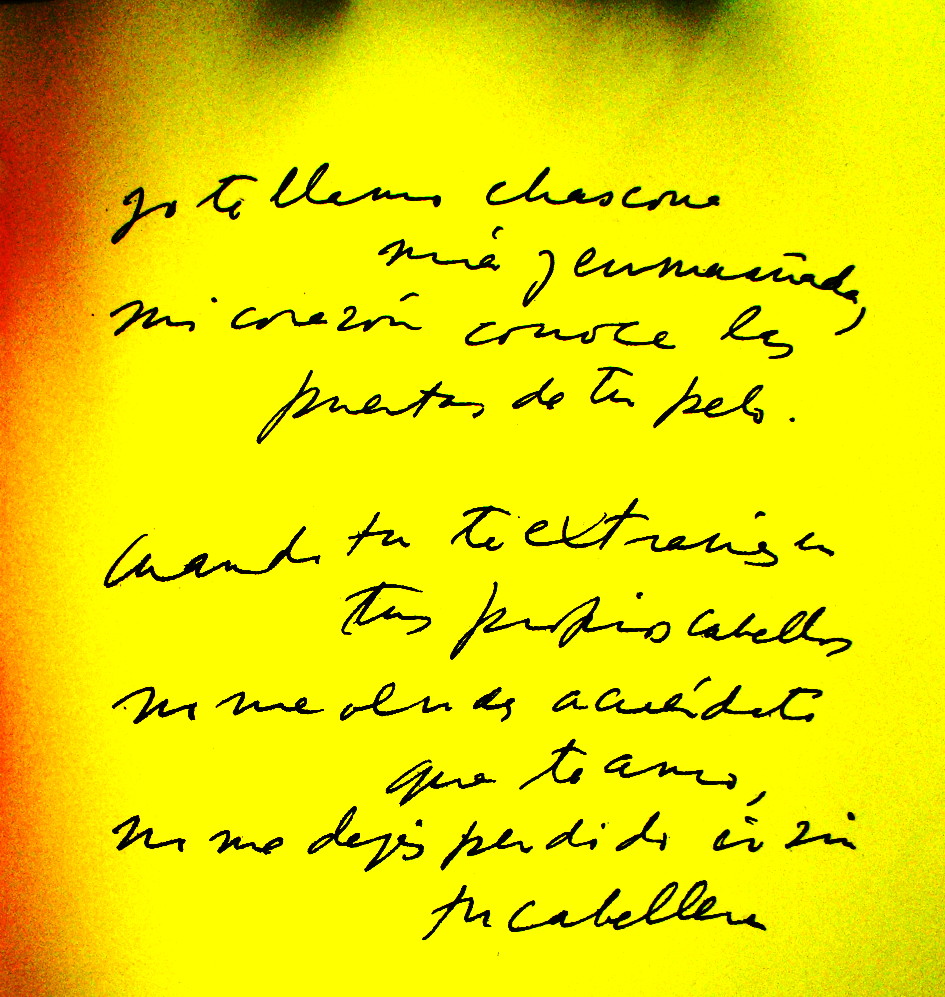 yo te llamo chascona
mía y enmarañada,
mi corazón conoce las
puertas de tu pelo.
Cuando tu te extravíes en
tus propios cabellos
no me olvides acuérdate
que te amo,
no me dejes perdido ir sin
tu cabellera